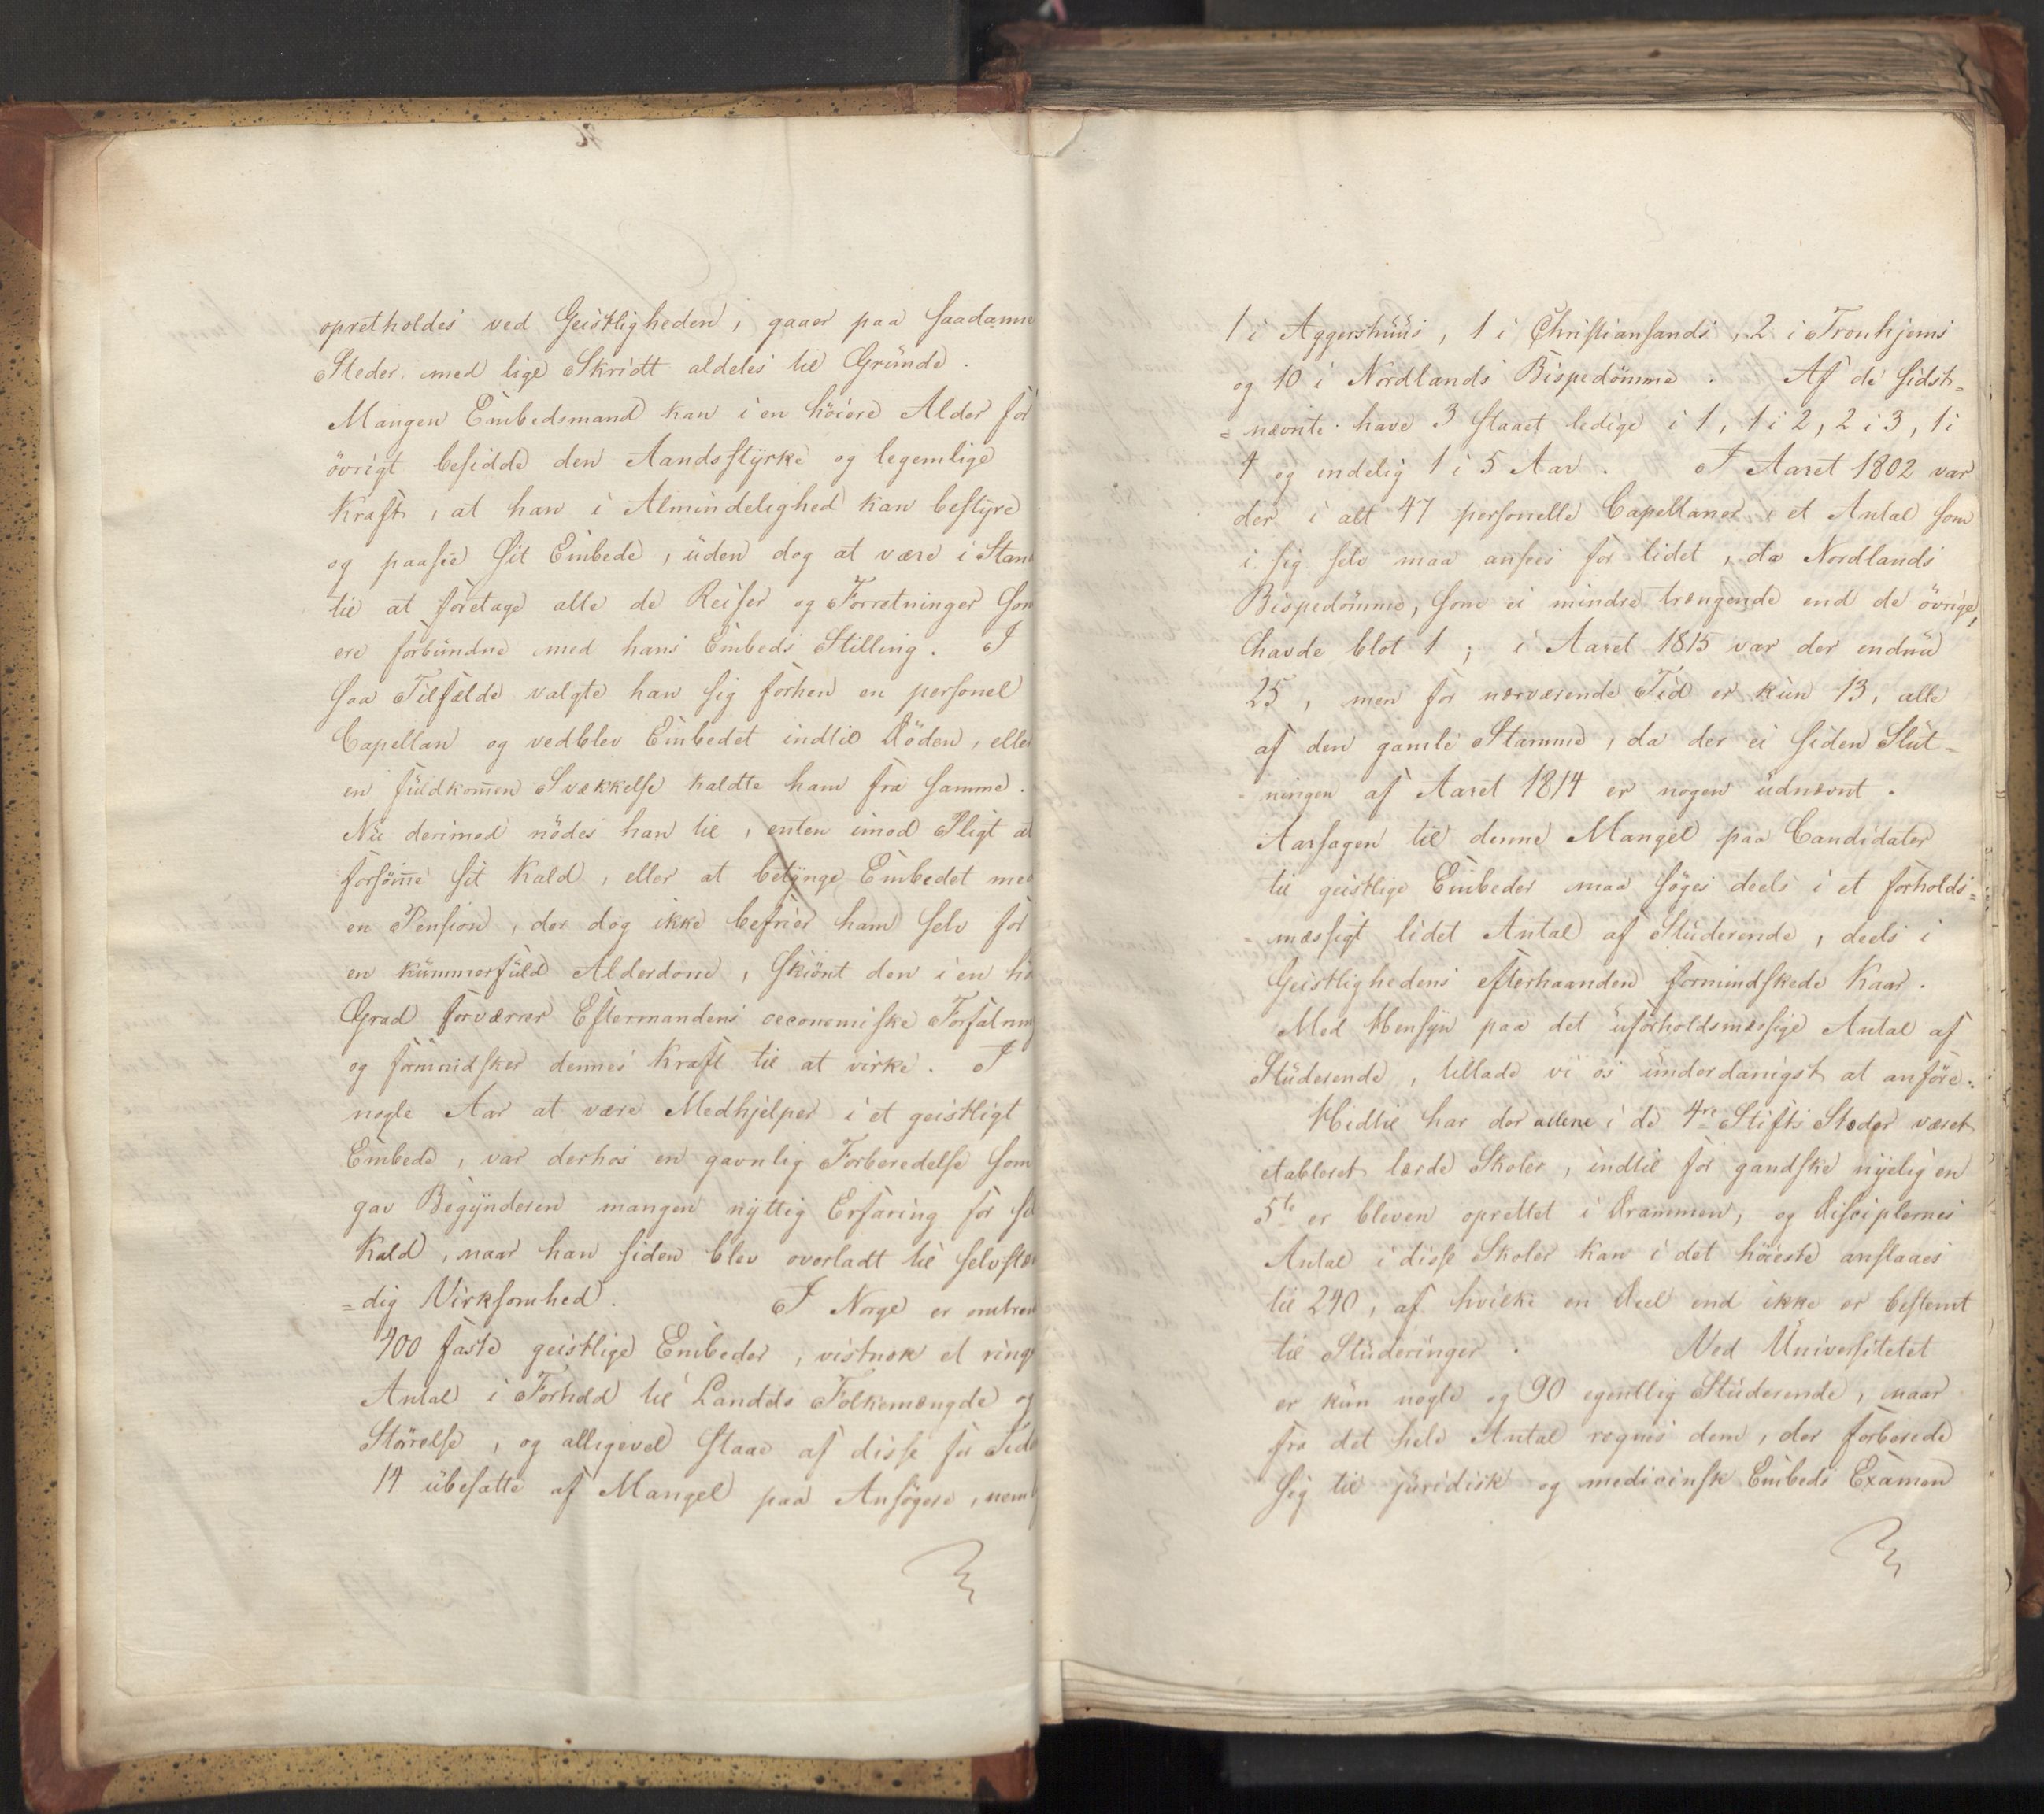 opretholdes ved Geistligheden, gaaer paa saadanne
Steder med lige Skridt aldeles til Grunde.
Mangen Embedsmand kan i en höiere Alder för
övrigt besidde den Aandsstyrke og legemlige
Kraft, at han i Almindelighed kan bestyre
og paasee sit Embede, uden dog at være i Stand
til at foretage alle de Reiser og Forretninger som
ere forbundne med hans Embeds Stilling. I
saa Tilfælde valgte han sig forhen en personel
Capellan og vedblev Embedet indtil Döden, eller
en fuldkom̄en Svækkelse kaldte ham fra samme.
Nu derimod nödes han til, enten imod Pligt at
forsöm̄e sit Kald, eller at betynge Embedet med
en Pension, der dog ikke befrier ham selv for
en kummerfuld Alderdom, skiönt den i en hö
Grad forværrer Eftermandens oeconomiske Forfatning
og formindsker dennes Kraft til at virke. I
nogle Aar at være Medhjelper i et geistligt
Embede, var derhos en gavnlig Forberedelse som
gav Begynderen mangen nyttig Erfaring for sit
Kald, naar han siden blev overladt til selvstæn
=dig Virksomhed. I Norge er omtrent
400 faste geistlige Embeder, vistnok et ringe
Antal i Forhold til Landets Folkemængde og
Störrelse, og alligevel staae af disse for Tiden
14 ubesatte af Mangel paa Ansögere, neml
1 i Aggershuus, 1 i Christiansands, 2 i Tronhjems
og 10 i Nordlands Bispedömme. Af de sidst=
=nævnte have 3 staaet ledige i 1, 1 i 2, 2 i 3, 1 i
4 og endelig 1 i 5 Aar. I Aaret 1802 var
der i alt 47 personelle Capellaner, et Antal som
i sig selv maa ansees for lidet, da Nordlands
Bispedömme, som ei mindre trængende end de övrige,
havde blot 1; i Aaret 1815 var der endnu
25, men for nærværende Tid er kun 13, alle
af den gamle Stamme, da der ei siden Slut=
=ningen af Aaret 1814 er nogen udnævnt.
Aarsagen til denne Mangel paa Candidater
til geistlige Embeder maa söges deels i et forholds=
=mæssigt lidet Antal af Studerende, deels i
Geistlighedens efterhaanden formindskede Kaar.
Med Hensyn paa det uforholdsmæssige Antal af
Studerende, tillade vi os underdanigst at anföre:
Hidtil har der allene i de 4re Stifts Stæder været
etableret lærde Skoler, indtil for gandske nyelig en
5te er bleven oprettet i Drammen, og Disciplernes
Antal i disse Skoler kan i det höieste anslaaes
til 240, af hvilke en Deel end ikke er bestemt
til Studeringer. Ved Universitetet
er kun nogle og 90 egentlig Studerende, naar
fra det hele Antal regnes dem, der forberede
sig til juridisk og medicinsk Embeds Examen